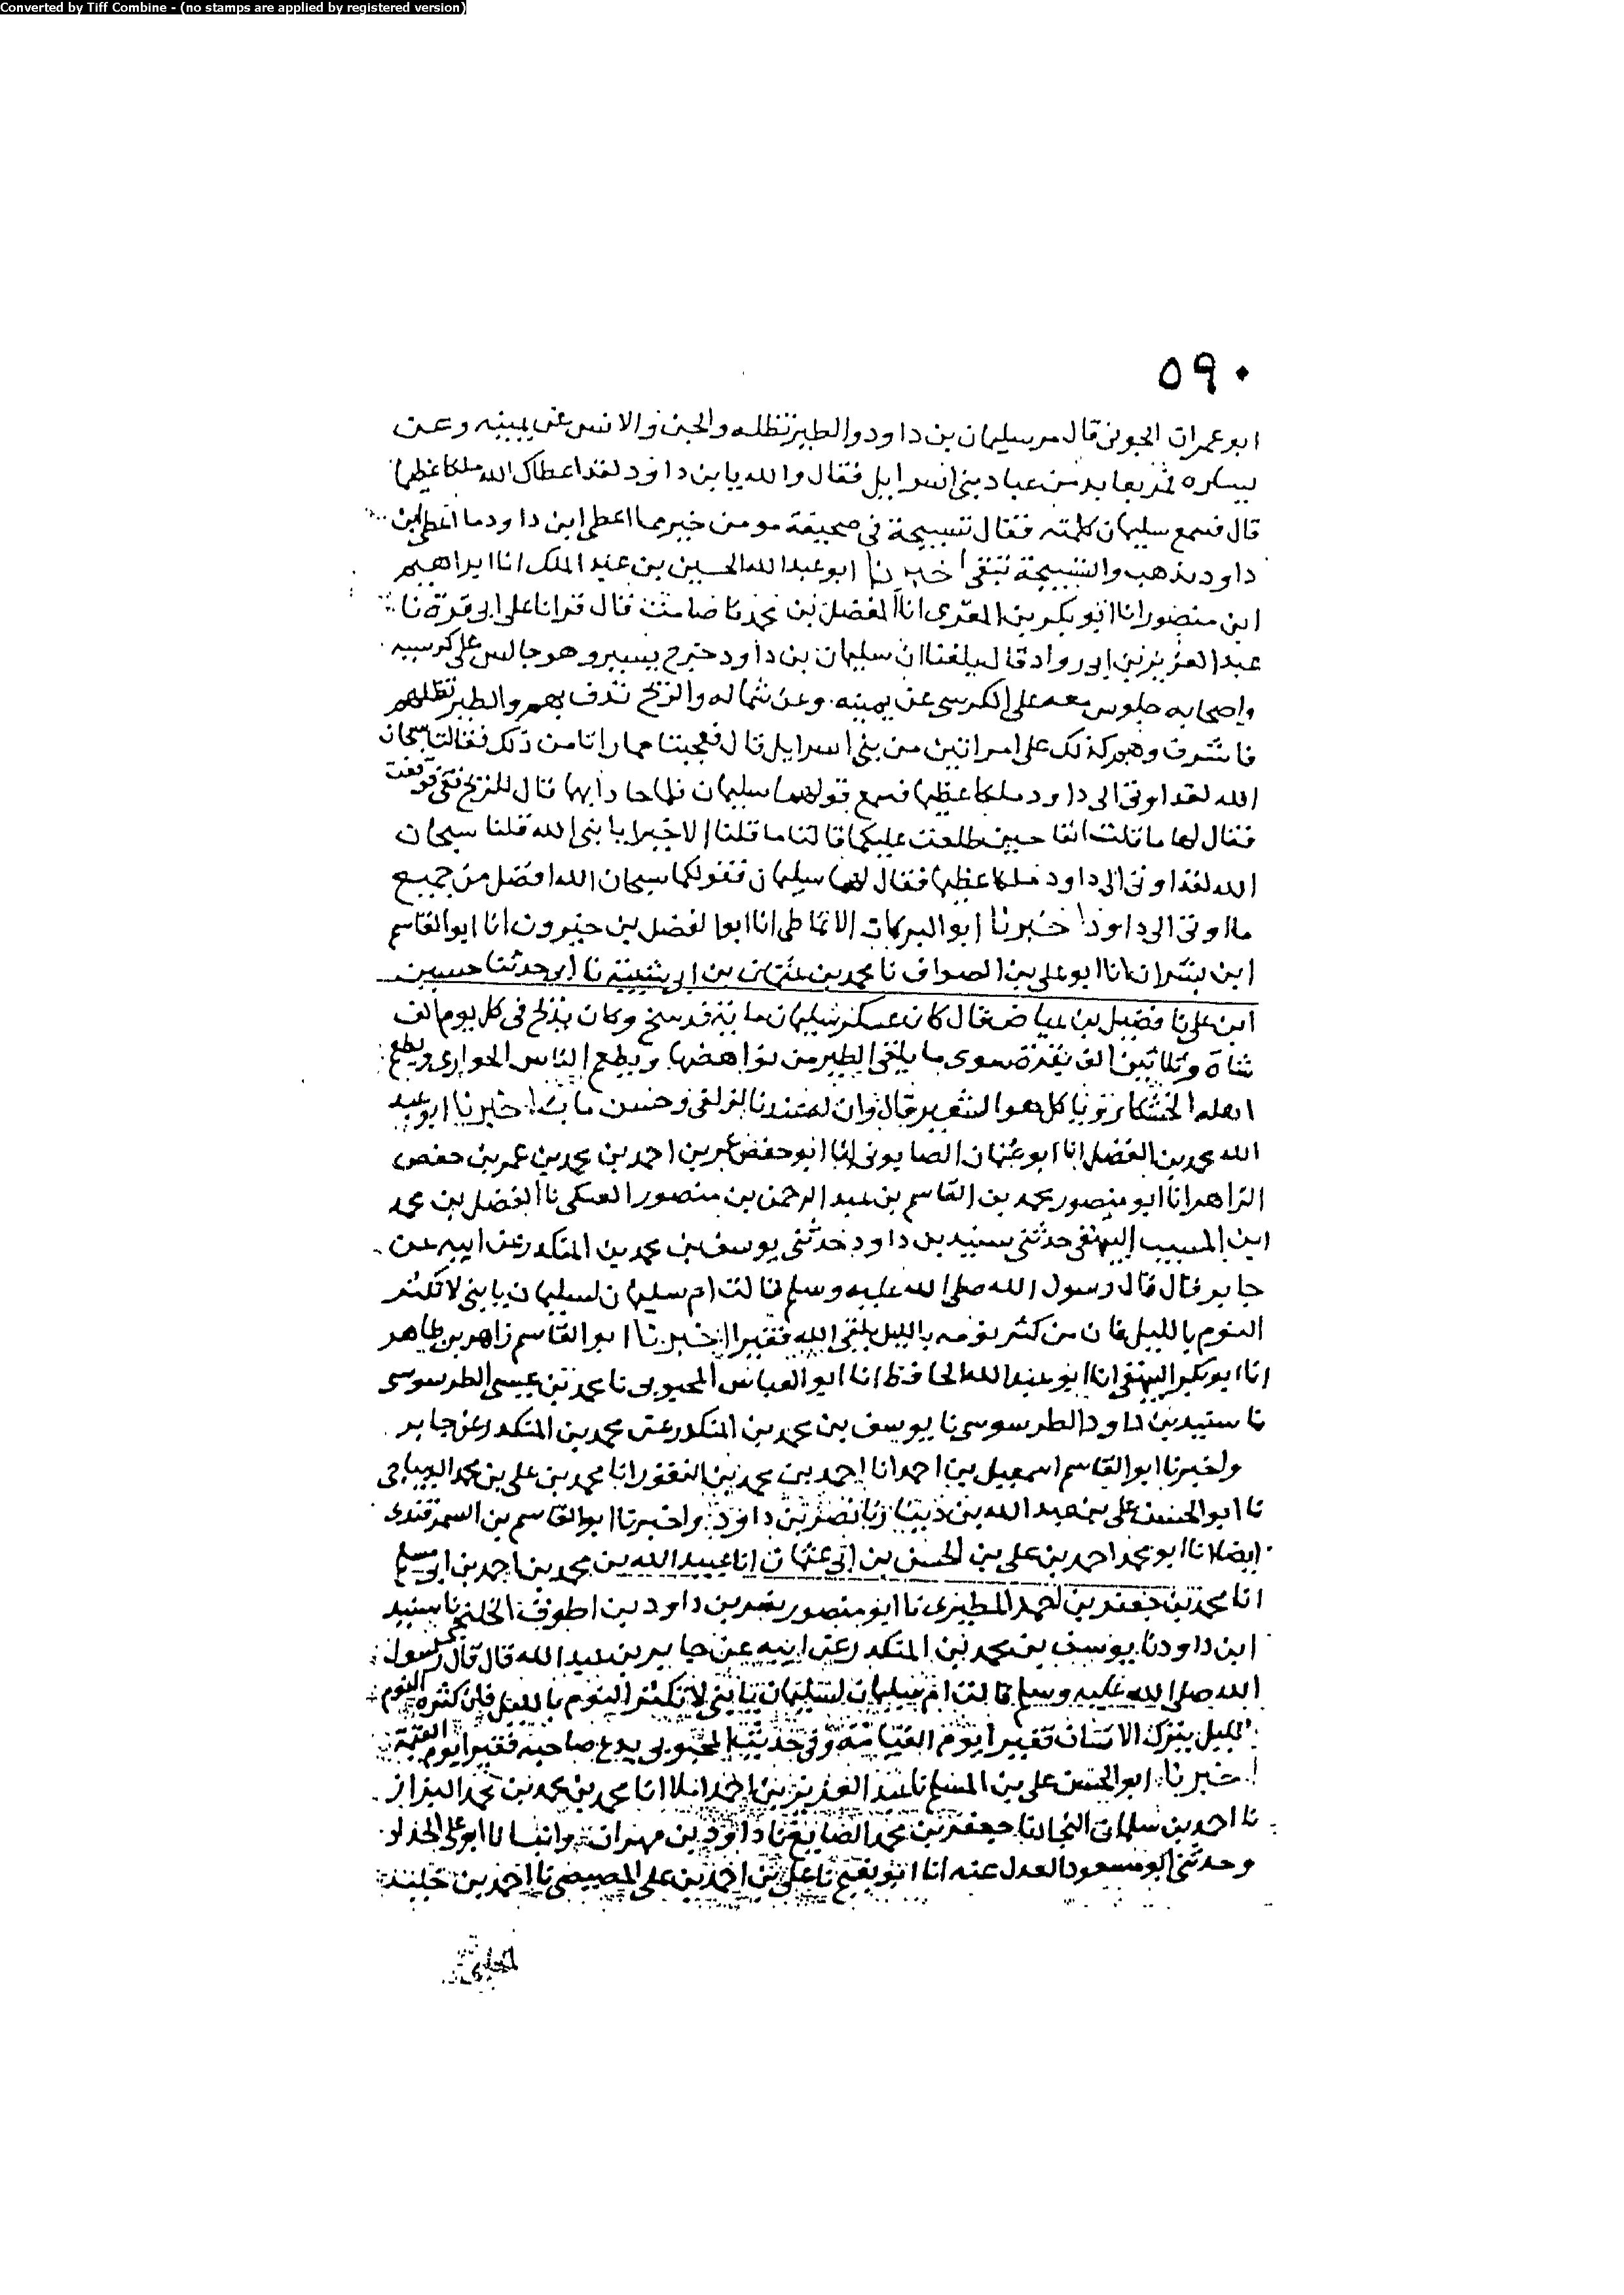 Converted by Tiff Combine - (no stamps are applied by registered version)
٥٩٠
ابو عمران الجونى قال مر سليمان بن داود والطير تظله والجن والانس عن يمينه وعن
يساره فمر بعابد من عباد بنى اسرايل فقال والله يا بن داود لقد اعطاك الله ملكا عظيما
قال فسمع سليمان كلمته فقال تسبيحة فى صحيفة مومن خير مما اعطى ابن داود ما اعطى ابن
داود يذهب والتسبيحة تبقى اخبرنا ابو عبد الله الحسين بن عبد الملك انا ابراهيم
ابن منصور انا ابو بكر بن المقرى انا المفضل بن محمد نا صامت قال قرانا على ابى قرة نا
عبد العزيز بن ابى رواد قال بلغنا ان سليمان بن داود خرج يسير وهو جالس على كرسيه
واصحابه جلوس معه على الكرسى عن يمينه وعن شماله والريح تدف بهم والطير تظلهم
فاشرف وهو كذلك على امراتين من بنى اسرايل قال فعجبتا مما راتا من ذلك فقالتا سبحان
الله لقد اوتى ال داود ملكا عظيما فسمع قولهما سليمان فلما حاذاهما قال للريح قفى فوقفت
فقال لهما ما قلتما حين طلعت عليكما قالتا ما قلنا الا خيرا يا نبى الله قلنا سبحان
الله لقد اوتى ال داود ملكا عظيما فقال لهما سليمان فقولكما سبحان الله افضل من جميع
ما اوتى ال داود اخبرنا ابو البركات الانماطى انا ابو الفضل بن خيرون انا ابو القاسم
ابن بشران انا ابو على بن الصواف نا محمد بن عثمان بن ابى شيبة نا ابى حدثنا حسين
ابن على نا فضيل بن عياض قال كان عسكر سليمان ماية فرسخ وكان يذبح فى كل يوم الف
شاة وثلاثين الف بقرة سوى ما يلقى الطير من نواهضها ويطعم الناس الحوارى ويطعم
اهله الخشكار وياكل هو الشعير قال وان له عندنا لزلفى وحسن ماب اخبرنا ابو عبد
الله محمد بن الفضل انا ابو عثمان الصابونى انا ابو حفص عمر بن احمد بن محمد بن عمر بن حفص
الزاهد انا ابو منصور محمد بن القاسم بن عبد الرحمن بن منصور العتكى نا الفضل بن محمد
ابن المسيب البيهقى حدثنى سنيد بن داود حدثنى يوسف بن محمد بن المنكدر عن ابيه عن
جابر قال قال رسول الله صلى الله عليه وسلم قالت ام سليمان لسليمان يا بنى لا تكثر
النوم بالليل فان من كثر نومه بالليل يلقى الله فقيرا اخبرنا ابو القاسم زاهر بن طاهر
انا ابو بكر البيهقى انا ابو عبد الله الحافظ انا ابو العباس المحبوبى نا محمد بن عيسى الطرسوسى
نا سنيد بن داود الطرسوسى نا يوسف بن محمد بن المنكدر عن محمد بن المنكدر عن جابر
واخبرنا ابو القاسم اسمعيل بن احمد انا احمد بن محمد بن النقور انا محمد بن على بن محمد الديباجى
نا ابو الحسن على بن عبد الله بن نا نصر بن داود واخبرنا ابو القاسم بن السمرقندى
ايضا انا ابو محمد احمد بن على بن الحسن بن ابى عثمان انا عبيد الله بن محمد بن احمد بن ابى مسلم
انا محمد بن جعفر بن احمد المطيرى نا ابو منصور نصر بن داود بن طوق الخلنجى نا سنيد
ابن داود نا يوسف بن محمد بن المنكدر عن ابيه عن جابر بن عبد الله قال قال رسول
الله صلى الله عليه وسلم قالت ام سليمان لسليمان يا بنى لا تكثر النوم بالليل فان كثرة النوم
بالليل يترك الانسان فقيرا يوم القيامة وفى حديث المحبوبى يدع صاحبه فقيرا يوم القيمة
اخبرنا ابو الحسن على بن المسلم نا عبد العزيز بن احمد املا انا محمد بن محمد بن محمد البزاز
نا احمد بن سلمان النجاد نا جعفر بن محمد الصايغ نا داود بن مهران وانبانا ابو على الحداد
وحدثنى ابو مسعود العدل عنه انا ابو نعيم نا على بن احمد بن على المصيصى نا احمد بن خليد
الحلبى